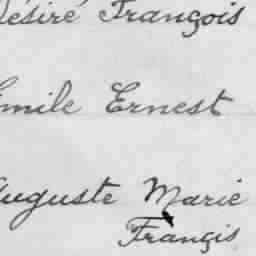 Désiré François
Emile Ernest
Auguste Marie
Françis